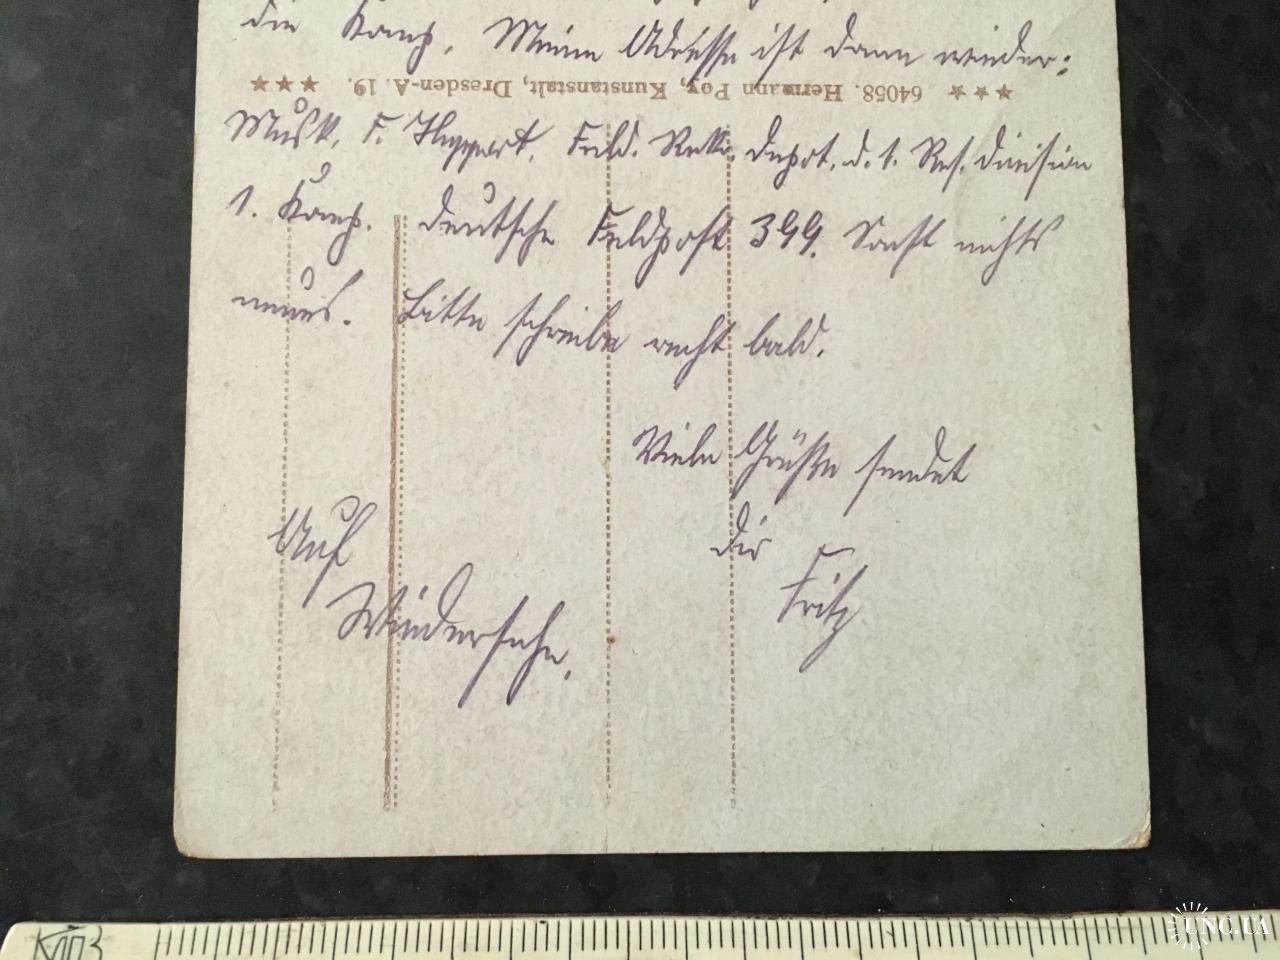 die Komp. Meine Adresse ist dann wieder:
★★★ 64058. Hermann Poy, Kunstanstalt, Dresden-A. 19. ★★★
Musk. F. Feld. Rekr. Depot. d. 1. Res. Division
1. Komp. deutsche Feldpost 399. Sonst nichts
neues. Bitte schreibe recht bald.
Viele Grüße sendet
dir
Fritz
Auf
Wiedersehn.
UNC.UA